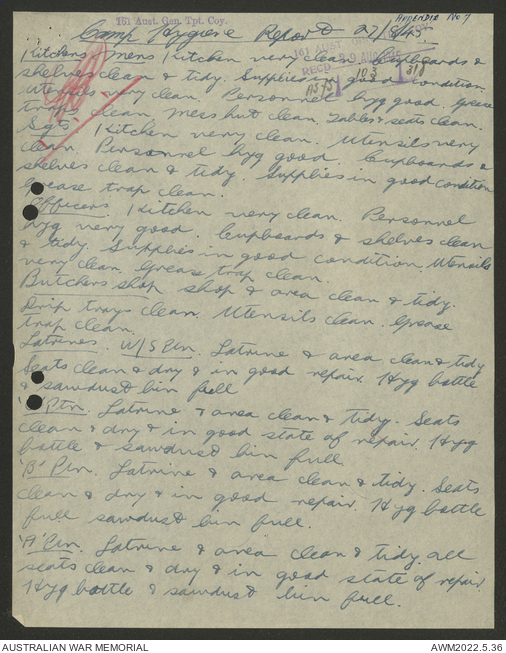 161 Aust. Gen. Tpt. Coy.
APPENDIX No 7
Camp Hygiene Report 27/8/45
161 AUST
RECD.
11575 | 103 | 318
Kitchens Mens Kitchen very clean. Cupboards &
shelves clean & tidy. Supplies good condition.
Utensils very clean. Personnel hyg good. Grease
traps clean, Mess hut clean, Tables & seats clean.
Sgts. Kitchen very clean. Utensils very
clean. Personnel hyg good. Cupboards &
shelves clean & tidy. Supplies in good condition
Grease trap clean.
Officers. Kitchen very clean. Personnel
hyg very good. Cupboards & shelves clean
& tidy. Supplies in good condition, Utensils
very clean. Grease trap clean.
Butchers shop shop & area clean & tidy.
Drip trays clean. Utensils clean. Grease
trap clean.
Latrines. W/S Pln. Latrine & area clean & tidy
Seats clean & dry & in good repair. Hyg bottle
& sawdust bin full
Pln. Latrine & area clean & tidy. Seats
clean & dry & in good state of repair. Hyg
bottle & sawdust bin full
'B' Pln. Latrine & area clean & tidy. Seats
clean & dry & in good repair. Hyg bottle
full sawdust bin full.
'A' Pln. Latrine & area clean & tidy. all
seats clean & dry & in good state of repair.
Hyg bottle & sawdust bin full.
AUSTRALIAN WAR MEMORIAL
AWM2022.5.36